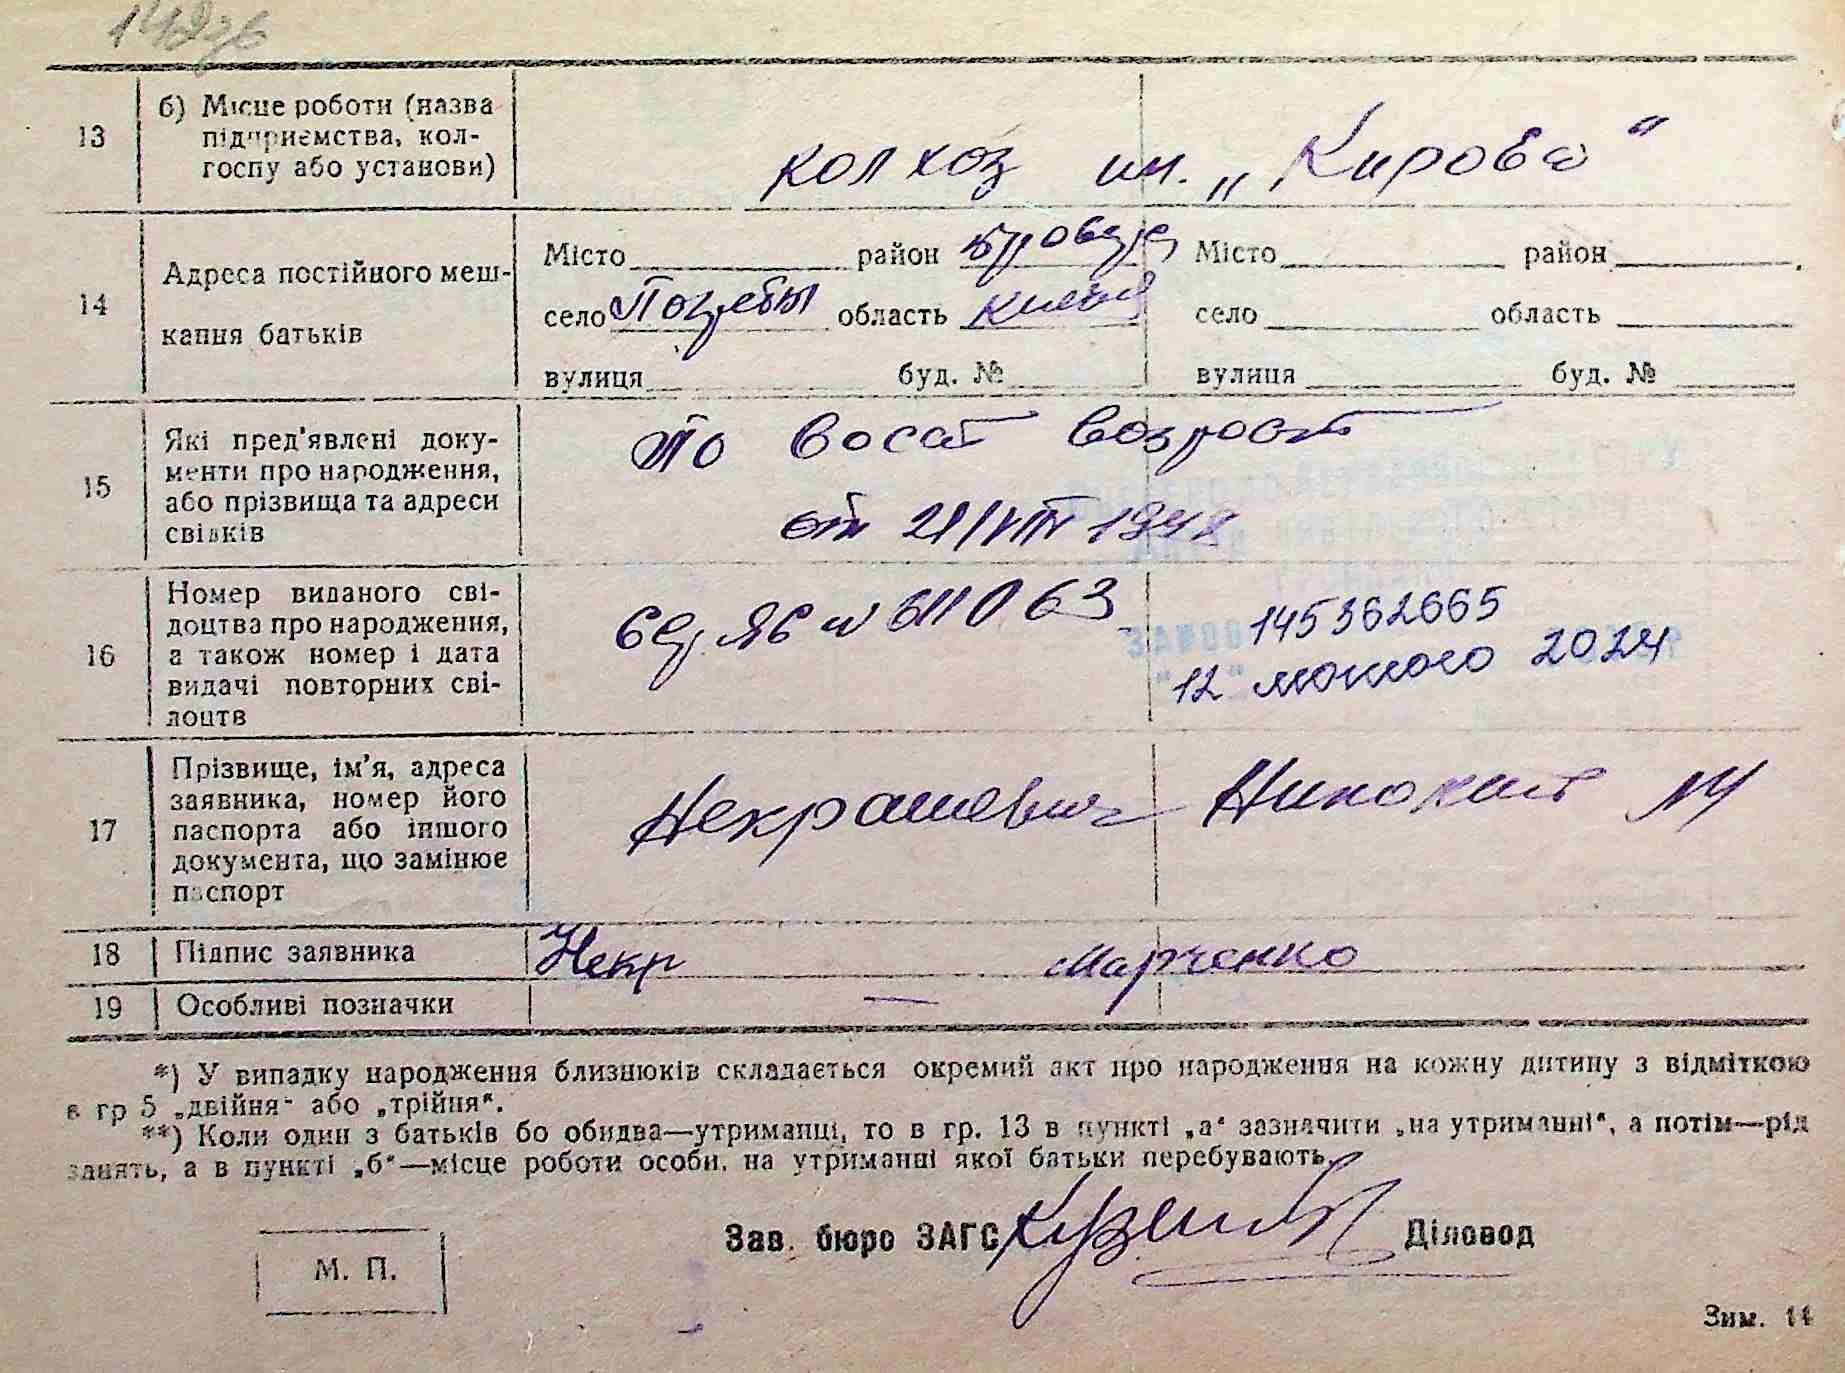 13
б) Місце роботи (назва
підприємства, кол-
госпу або установи)
колхоз им. „Кирова“
14
Адреса постійного меш-
кання батьків
Місто район Бровар Місто район
село Погребы область Киевск село область
вулиця буд. № вулиця буд. №
15
Які пред'явлені доку-
менти про народження,
або прізвища та адреси
свідків
По возраст
от 21/VIII 1948
16
Номер виданого сві-
доцтва про народження,
а також номер і дата
видачі повторних сві-
доцтв
ЯБ № 611063
145362665
12 лютого 2024
17
Прізвище, ім'я, адреса
заявника, номер його
паспорта або іншого
документа, що замінює
паспорт
Некрашевич
18 Підпис заявника Некр Марченко
19 Особливі позначки —
*) У випадку народження близнюків складається окремий акт про народження на кожну дитину з відміткою
в гр 5 „двійня“ або „трійня“.
**) Коли один з батьків бо обидва—утриманці, то в гр. 13 в пункті „а“ зазначити „на утриманні“, а потім—рід
занять, а в пункті „б“—місце роботи особи, на утриманні якої батьки перебувають.
Зав. бюро ЗАГС Діловод
М. П.
Зим. 14